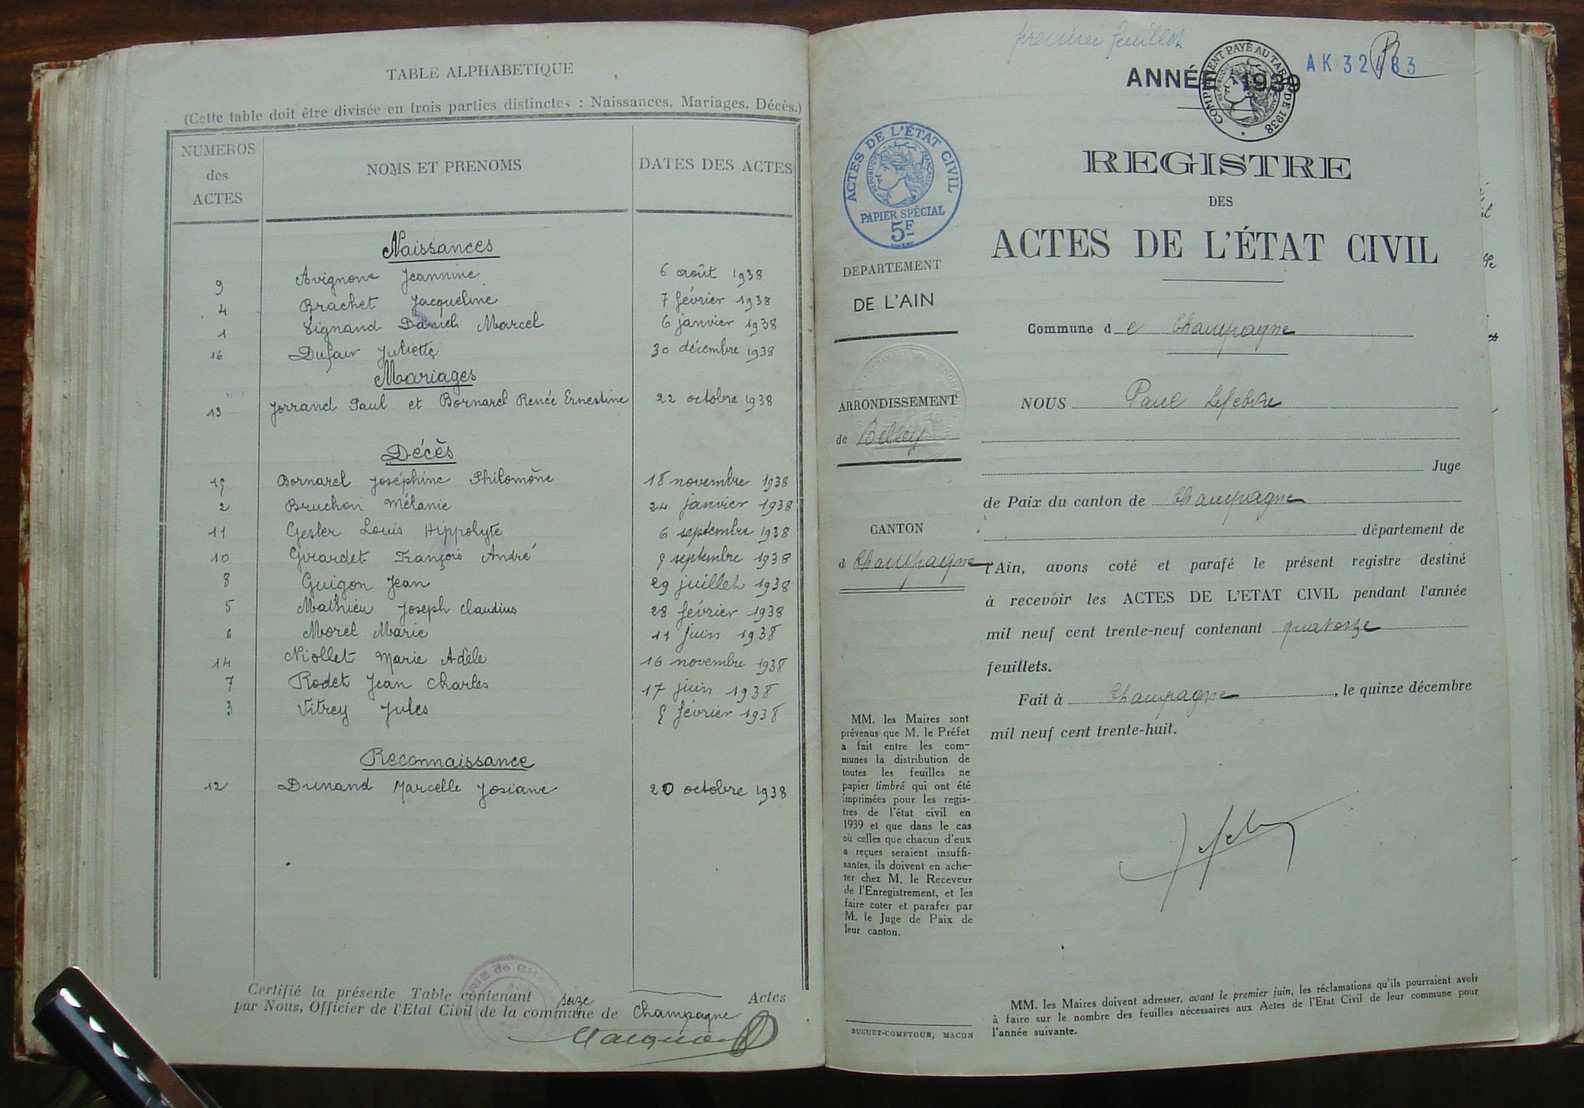 TABLE ALPHABETIQUE
(Cette table doit être divisée en trois parties distinctes : Naissances, Mariages, Décès.)
NUMEROS des ACTES NOMS ET PRENOMS DATES DES ACTES
Naissances
9 Avignone Jeannine 6 août 1938
4 Brachet Jacqueline 7 février 1938
1 Vignand Daniel Marcel 6 janvier 1938
16 Dufair Juliette 30 décembre 1938
Mariages
13 Jorrand Paul et Bornarel Renée Ernestine 22 octobre 1938
Décès
15 Bornarel Joséphine Philomène 18 novembre 1938
2 Bruchon Mélanie 24 janvier 1938
11 Gesler Louis Hippolyte 6 septembre 1938
10 Girardet François André 9 septembre 1938
8 Guigon Jean 29 juillet 1938
5 Mathieu Joseph Claudius 28 février 1938
6 Morel Marie 11 juin 1938
14 Niollet Marie Adèle 16 novembre 1938
7 Rodet Jean Charles 17 juin 1938
3 Vitrey Jules février 1938
Reconnaissance
12 Dunand Marcelle Josiane 20 octobre 1938
Certifié la présente Table contenant seize Actes
par Nous, Officier de l'Etat Civil de la commune de Champagne
premier feuillet
AK 32483
ANNÉE 1939
COMPLÉMENT PAYÉ AU TARIF DE 1938
ACTES DE L'ÉTAT CIVIL
PAPIER SPÉCIAL
5F
REGISTRE
DES
ACTES DE L'ÉTAT CIVIL
DEPARTEMENT
DE L'AIN
ARRONDISSEMENT
de Belley
CANTON
d Champagne
MM. les Maires sont
prévenus que M. le Préfet
a fait entre les com-
munes la distribution de
toutes les feuilles ne
papier timbré qui ont été
imprimées pour les regis-
tres de l'état civil en
1939 et que dans le cas
où celles que chacun d'eux
a reçues seraient insuffi-
santes, ils doivent en ache-
ter chez M. le Receveur
de l'Enregistrement, et les
faire coter et parafer par
M. le Juge de Paix de
leur canton.
BUGUET-COMPTOUR, MACON
Commune de Champagne
NOUS Paul Lefebvre
Juge
de Paix du canton de Champagne
département de
l'Ain, avons coté et parafé le présent registre destiné
à recevoir les ACTES DE L'ETAT CIVIL pendant l'année
mil neuf cent trente-neuf contenant quatorze
feuillets.
Fait à Champagne, le quinze décembre
mil neuf cent trente-huit.
MM. les Maires doivent adresser, avant le premier juin, les réclamations qu'ils pourraient avoir
à faire sur le nombre des feuilles nécessaires aux Actes de l'Etat Civil de leur commune pour
l'année suivante.